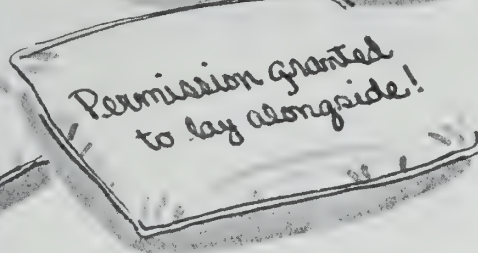 Permission granted
to lay alongside!